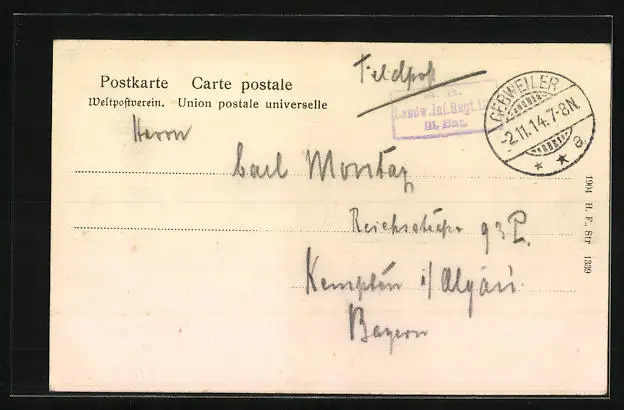 Feldpost
Postkarte Carte postale
Weltpostverein. Union postale universelle
Landw. Inf. Regt.
III. Bat.
GEBWEILER
-2.11.14.7-8N.
* * a
Herrn
Carl Montag
93 P.
Kempten i/Algäu.
Bayern
1904 H. F., Str 1339